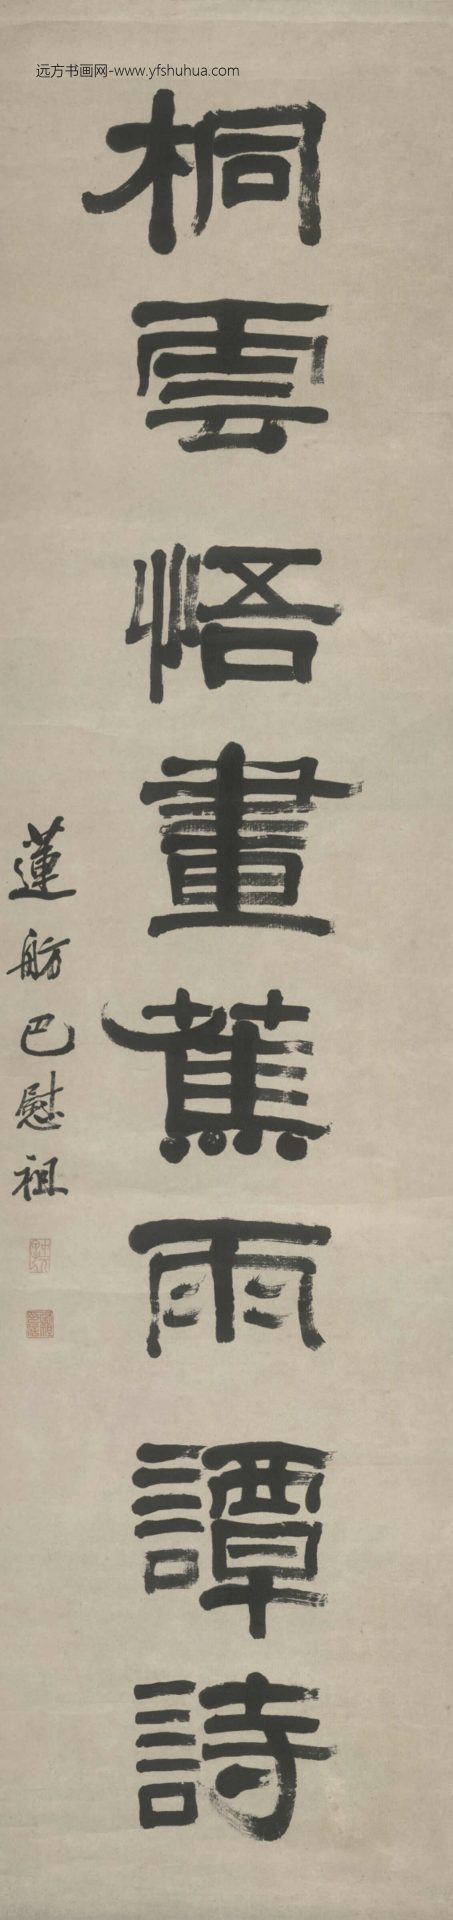 远方书画网-www.yfshuhua.com
桐雲悟畫蕉雨譚詩
蓮舫巴慰祖